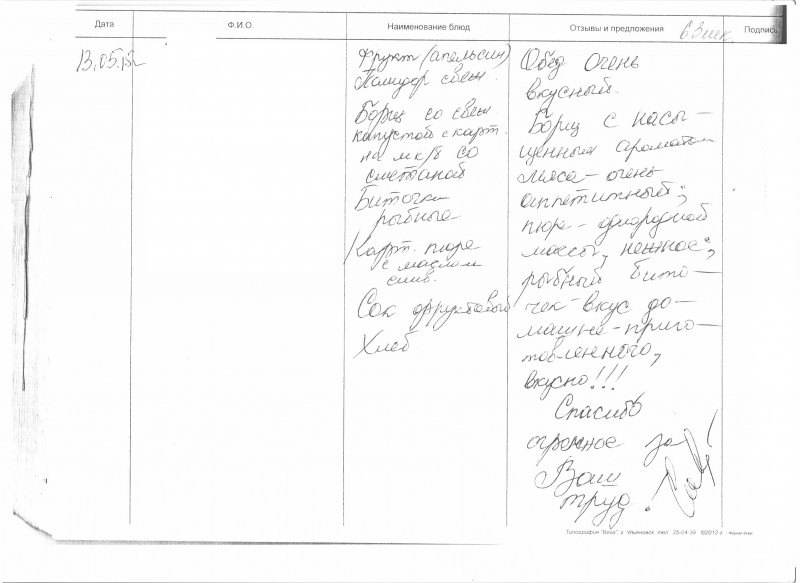 Дата Ф.И.О. Наименование блюд Отзывы и предложения Подпись
63шк.
13.05.15г
Фрукт (апельсин)
Помидор свеж.
Борщ со свеж
капустой с карт.
на мк/б со
сметаной
Биточки
рыбные
Карт. пюре
с маслом
слив.
Сок фруктовый
Хлеб
Обед очень
вкусный.
Борщ с насы-
щенным ароматом
мяса - очень
аппетитный;
пюре - однородной
массы, нежное;
рыбный бито-
чек - вкус до-
машне-приго-
товленного,
вкусно!!!
Спасибо
огромное за
Ваш
труд!
Типография "Вега", г. Ульяновск тел. 25-04-39 ©2012 г.